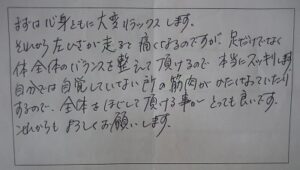 まずは心身ともに大変リラックスします。
それから左ひざが走ると痛くなるのですが、足だけでなく
体全体のバランスを整えて頂けるので本当にスッキリします
自分では自覚していない所の筋肉がかたくなっていたり
するので、全体をほぐして頂ける事がとっても良いです。
これからもよろしくお願いします。